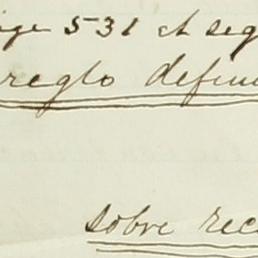 ige 531 et seq
reglo defin
sobre rec